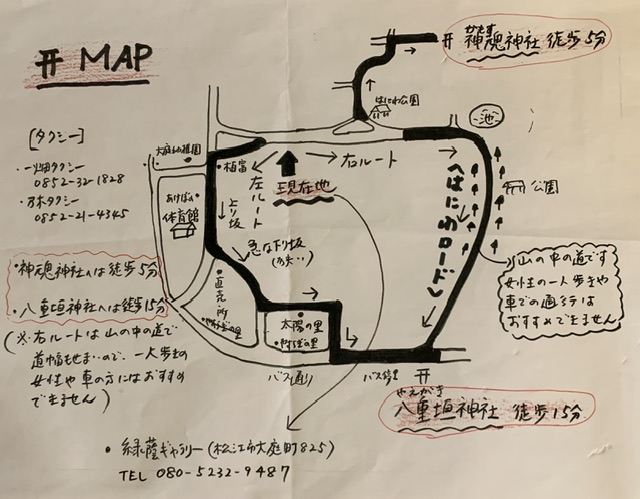 MAP
神魂神社 徒歩5分
かもす
はにわ公園
池
[タクシー]
・一畑タクシー
0852-32-1828
0852-21-4345
大庭幼稚園
・植富
左ルート
右ルート
現在地
へはにわロード
公園
あけぼの
体育館
上り坂
急な下り坂
・直売所
太陽の里
やほ垣の里
山の中の道です
女性の一人歩きや
車での通行は
おすすめできません
・神魂神社へは徒歩5分
・八重垣神社へは徒歩15分
(※右ルートは山の中の道で
道幅もせまいので、一人歩きの
女性や車の方にはおすすめ
できません)
バス通り
バス停
やえがき
八重垣神社 徒歩15分
・緑蔭ギャラリー(松江市大庭町825)
TEL 080-5232-9487